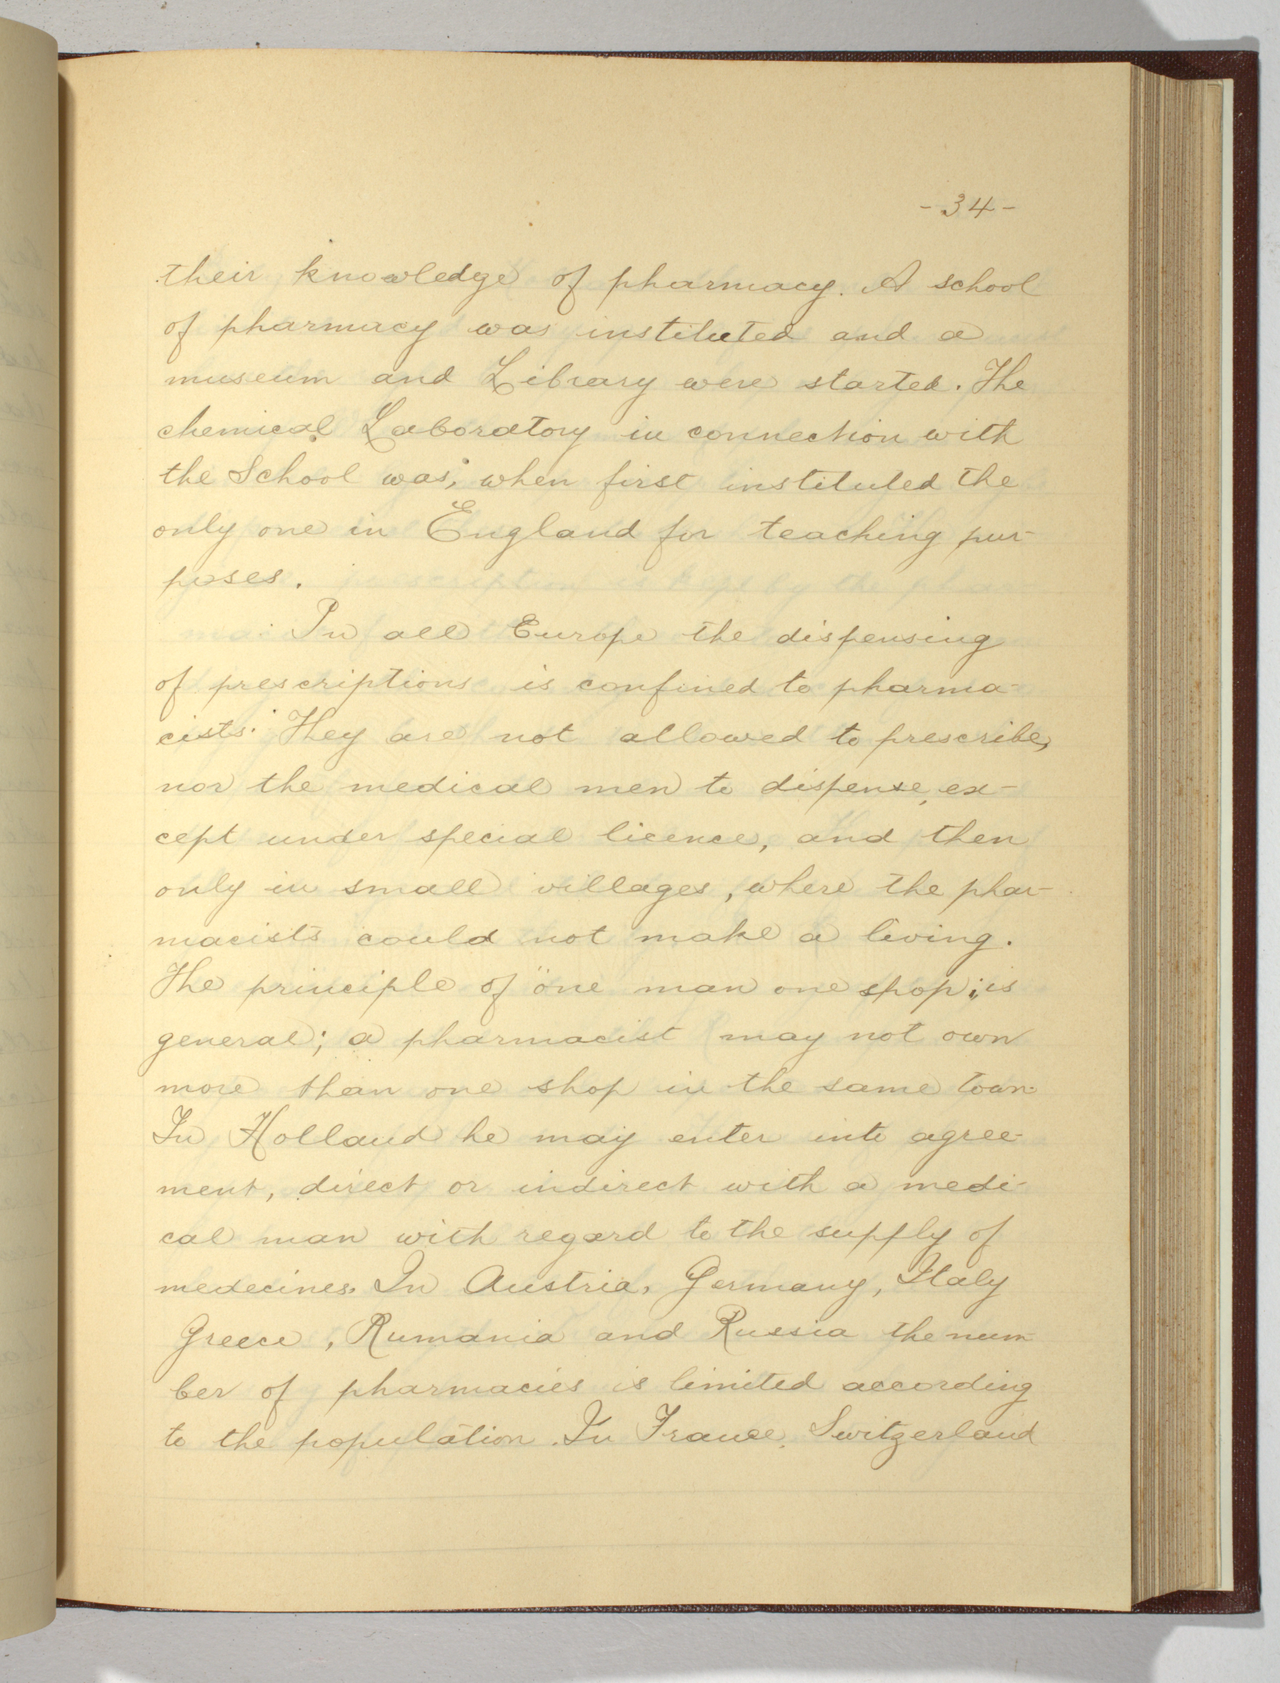 -34-
their knowledge of pharmacy. A school
of pharmacy was instituted and a
museum and Library were started. The
chemical Laboratory in connection with
the School was, when first instituted the
only one in England for teaching pur-
poses.
In all Europe the dispensing
of prescriptions is confined to pharma-
cists. They are not allowed to prescribe,
nor the medical men to dispense, ex-
cept under special licence, and then
only in small villages, where the phar-
macists could not make a living.
The principle of "one man one shop" is
general; a pharmacist may not own
more than one shop in the same town.
In Holland he may enter into agree-
ment, direct or indirect with a medi-
cal man with regard to the supply of
medecines. In Austria, Germany, Italy
Greece, Rumania and Russia the num-
ber of pharmacies is limited according
to the population. In France, Switzerland